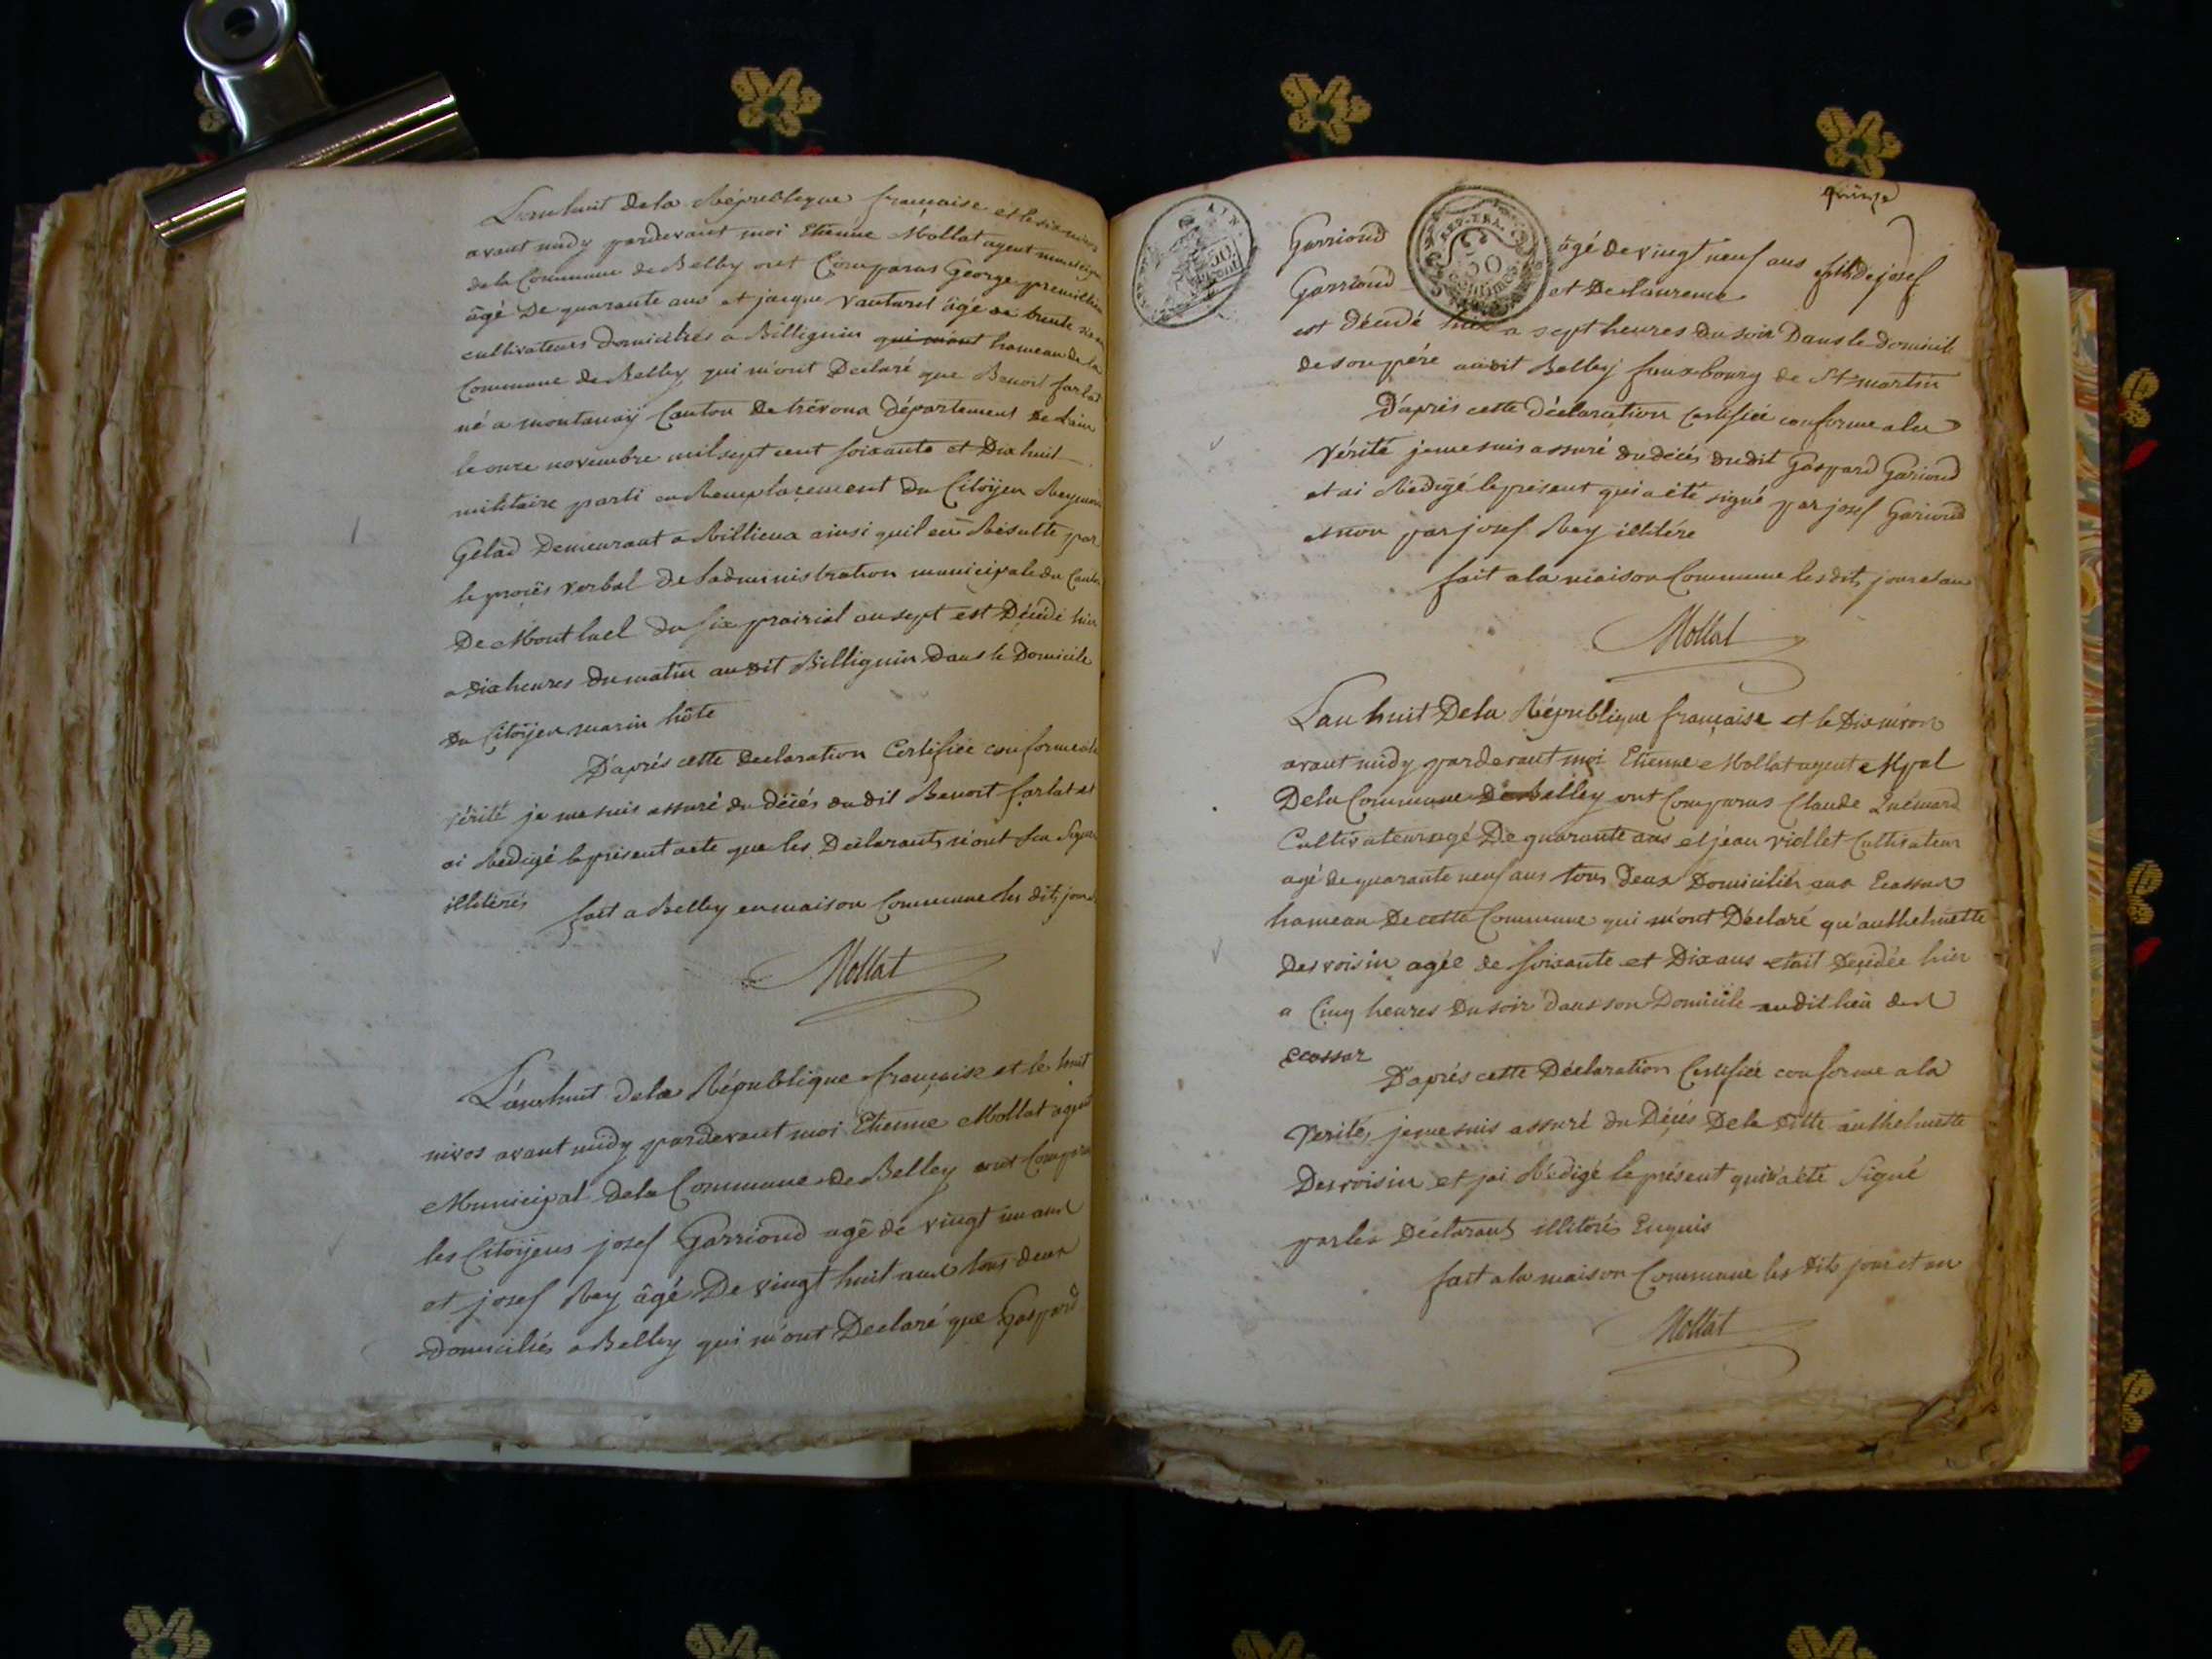 L'an huit de la République française et le six nivos
avant midy pardevant moi Etienne Mollat agent municipal
de la Commune de Belley ont Comparus George premillieu
âgé De quarante ans et jacque vauturet âgé de trente six ans
cultivateurs domiciliés a Billignin qui m'ont hameau de la
Commune de Belley qui m'ont Déclaré que Benoit farlat
né a montanay Canton de trévoux département de Lain
le onze novembre mil sept cent soixante et Dix huit
militaire parti en Remplacement du Citoÿen
Gelad Demeurant a Rillieux ainsi quil en Résulte par
le procès verbal de Ladministration municipale du Canton
De Montluel du six prairial an sept est Décédé hier
a Dix heures du matin audit Billignin Dans le Domicile
Du Citoÿen marin hôte
D'après cette declaration Certifiée conforme a la
vérité je me suis assuré du décés dudit Benoit farlat et
ai Redigé le présent acte que les Declarants n'ont su signer
illiterés
fait a Belley en maison Commune les dits jour
Mollat
L'an huit de la République française et le huit
nivos avant midy pardevant moi Etienne Mollat agent
Municipal de la Commune de Belley ont Comparu
les Citoÿens josef Garriond agé de vingt un ans
et josef Rey âgé De vingt huit ans tous deux
domiciliés a Belley qui m'ont Declaré que Gaspard
quinze
Garriond âgé de vingt neuf ans fils de josef
Garriond et De laurence
AIN
50
centimes
est décédé hier a sept heures du soir Dans le domicile
de son père audit Belley faux bourg de St martin
D'après cette déclaration Certifiée conforme a la
vérité je me suis assuré du décés dudit Gaspard Gariond
et ai Rédigé le présent qui a été signé par josef Gariond
et non par josef Rey illitére
fait a la maison Commune les dits jour et an
Mollat
L'an huit De la République française et le Dix nivos
avant midy pardevant moi Etienne Mollat agent Mpal
De la Commune de Belley ont Comparus Claude Quémard
Cultivateur agé De quarante ans et jean viollet Cultivateur
agé de quarante neuf ans tous Deux Domiciliés aux Ecassas
hameau De cette Commune qui m'ont Déclaré qu'anthelmette
Desvoisin agée de soixante et Dix ans etait Decédée hier
a Cinq heures du soir dans son Domicile audit lieu des
Ecassaz
D'après cette Déclaration Certifiée conforme a la
Verité, je me suis assuré du Décés De la ditte anthelmette
Desvoisin et jai Rédigé le présent qui n'a été Signé
par les Déclarants illitérés Enquis
fait a la maison Commune les dits jour et an
Mollat